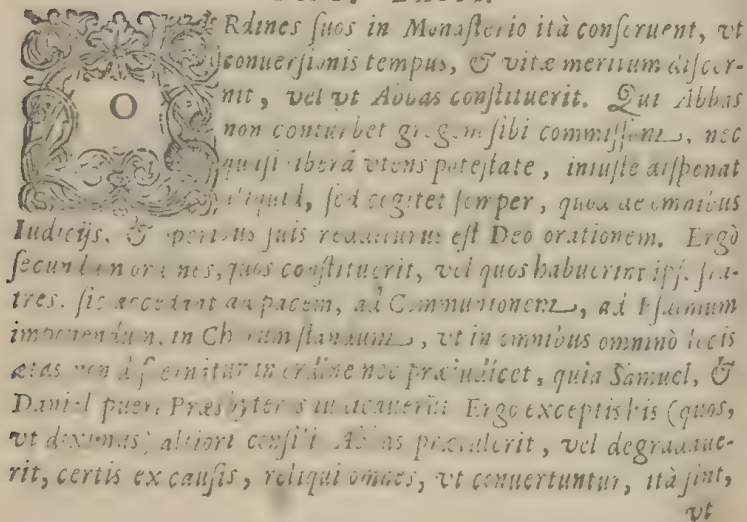 O Rdines suos in Monasterio ità conseruent, vt
conuersionis tempus, & vitæ meritum discer-
nit, vel vt Abbas constituerit. Qui Abbas
non conturbet gregem sibi commissum, nec
quasi libera vtens potestate, iniuste disponat
aliquid, sed cogitet semper, quod de omnibus
Iudicijs, & operibus suis redditurus est Deo orationem. Ergò
secundum ordines, quos constituerit, vel quos habuerint ipsi fra-
tres, sic accedant ad pacem, ad Communionem, ad Psalmum
imponendum, in Choro standum, vt in omnibus omninò locis
ætas non discernitur in ordine nec præiudicet, quia Samuel, &
Daniel pueri Præsbyteros iudicauerūt Ergo exceptis his (quos,
vt diximus) altiori consili Abbas prætulerit, vel degradaue-
rit, certis ex causis, reliqui omnes, vt conuertuntur, ità sint,
vt